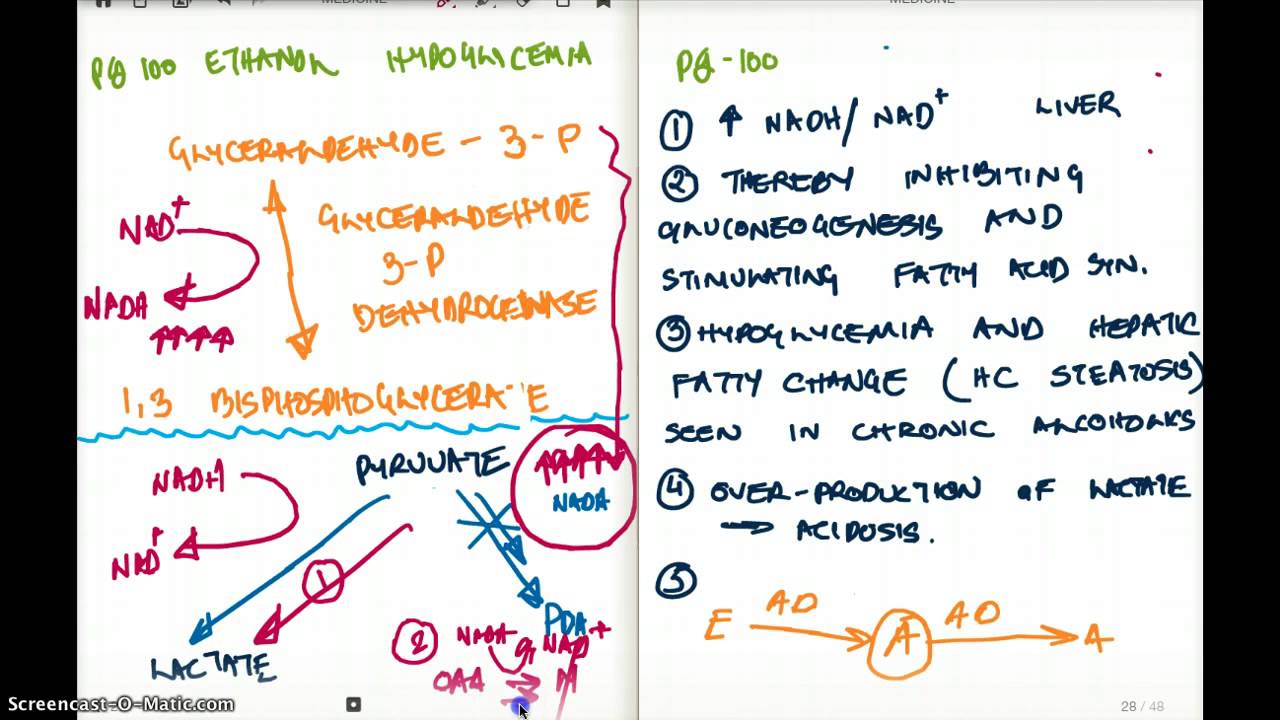 MEDICINE
MEDICINE
PG 100 ETHANOL HYPOGLYCEMIA
GLYCERALDEHYDE - 3 - P
NAD+
GLYCERALDEHYDE
3-P
DEHYDROGENASE
NADH
↑↑↑↑
1,3 BISPHOSPHOGLYCERATE
PYRUVATE
↑↑↑↑↑
NADH
NADH
NAD+
1
LACTATE
PDA
2
NADH
NAD+
OAA
M
PG - 100
1 ↑ NADH/NAD+ LIVER
2 THEREBY INHIBITING
GLUCONEOGENESIS AND
STIMULATING FATTY ACID SYN.
3 HYPOGLYCEMIA AND HEPATIC
FATTY CHANGE (HC STEATOSIS)
SEEN IN CHRONIC ALCOHOLKS
4 OVER-PRODUCTION OF LACTATE
→ ACIDOSIS.
5
E AD → A AD → A
Screencast-O-Matic.com
28 / 48